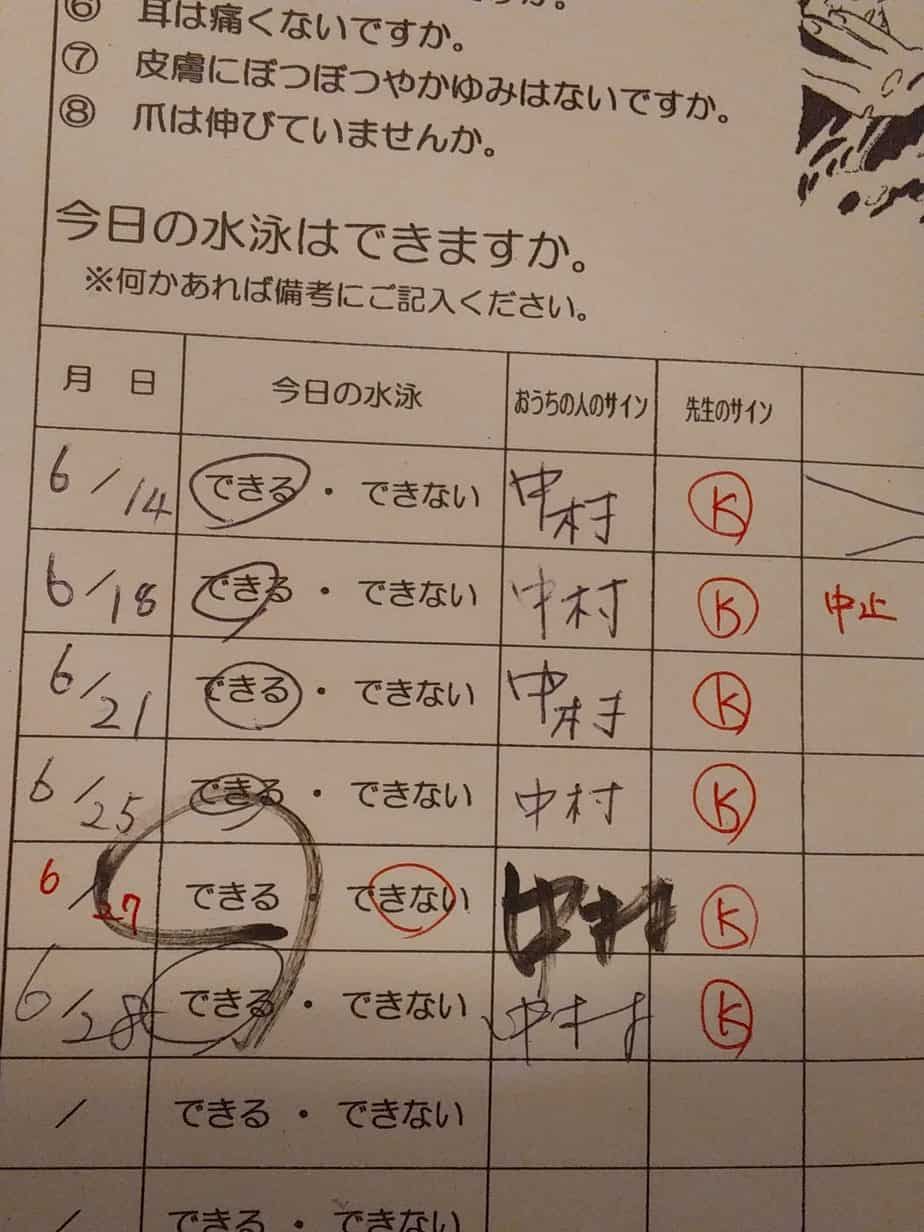 ⑥ 耳は痛くないですか。
⑦ 皮膚にぼつぼつやかゆみはないですか。
⑧ 爪は伸びていませんか。
今日の水泳はできますか。
※何かあれば備考にご記入ください。
月 日 今日の水泳 おうちの人のサイン 先生のサイン
6/14 できる・できない 中村 K
6/18 できる・できない 中村 K 中止
6/21 できる・できない 中村 K
6/25 できる・できない 中村 K
6/27 できる・できない 中村 K
6/28 できる・できない 中村 K
/ できる・できない
/ できる・できない